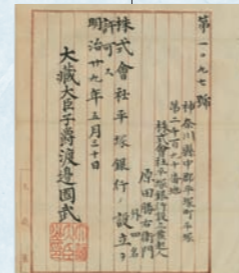 第一〇九七號
神奈川縣中郡平塚町平塚
第二千百九十番地
株式會社平塚銀行設立發起人
原田勝右衛門
外四名
株式會社平塚銀行ノ設立ヲ
許可ス
明治廿九年五月三十日
大藏大臣子爵渡邊國武